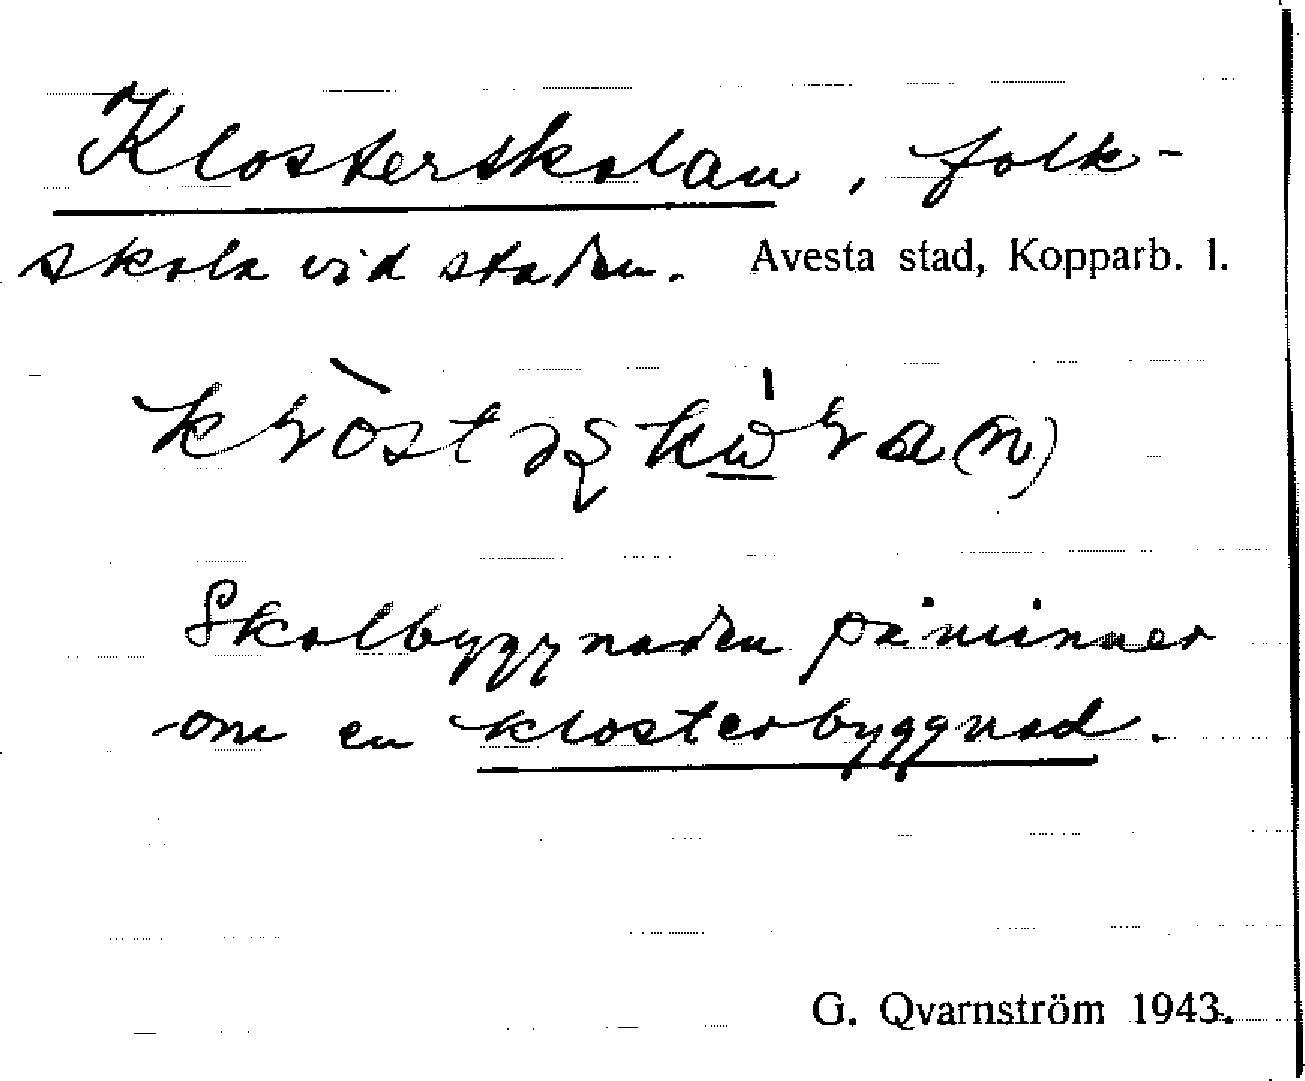 Klosterskolan, folk-
skola vid staden. Avesta stad, Kopparb. l.
Skolbyggnaden påminner
om en klosterbyggnad.
G. Qvarnström 1943.